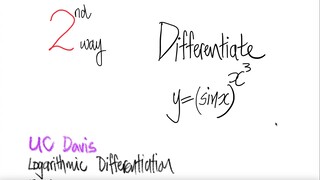 2nd way
Differentiate
y=(sinx)^x^3
UC Davis
Logarithmic Differentiation